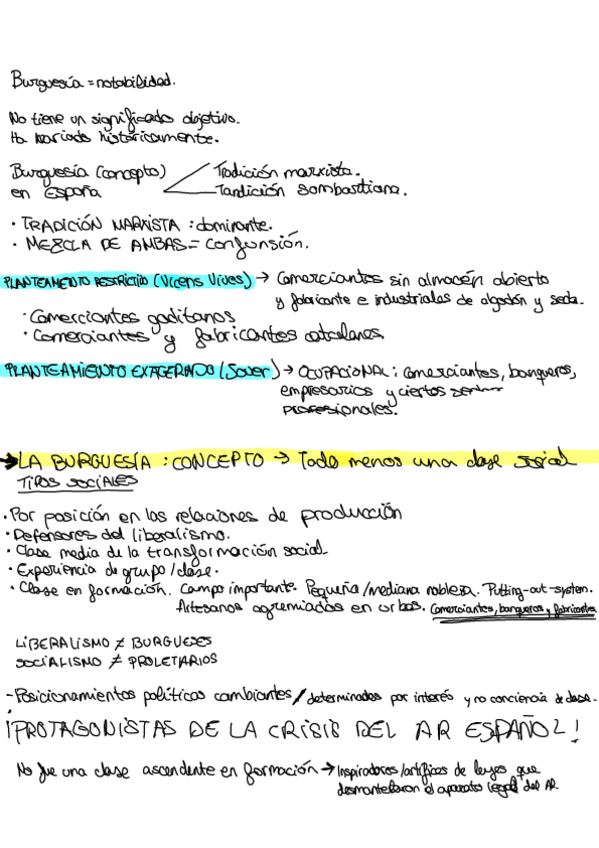 Burguesía = notabilidad.
No tiene un significado objetivo.
Ha variado históricamente.
Burguesía (concepto) Tradición marxista.
en España Tardición sombartiana.
· TRADICIÓN MARXISTA : dominante.
· MEZCLA DE AMBAS = Confunsión.
PLANTEAMIENTO RESTRICTIVO (Vicens Vives) → Comerciantes sin almacén abierto
y fabricante e industriales de algodón y seda.
· Comerciantes gaditanos
· Comerciantes y fabricantes catalanes.
PLANTEAMIENTO EXAGERADO (Sover) → OCUPACIONAL : comerciantes, banqueros,
empresarios y ciertos
profesionales.
→ LA BURGUESÍA : CONCEPTO → Todo menos una clase social
TIPOS SOCIALES
· Por posición en las relaciones de producción
· Defensores del liberalismo.
· Clase media de la transformación social.
· Experiencia de grupo / clase.
· Clase en formación. Campo importante. Pequeña/mediana nobleza. Putting-out-system.
Artesanos agremiados en urbas. Comerciantes, banqueros y fabricantes
LIBERALISMO ≠ BURGUESES
SOCIALISMO ≠ PROLETARIOS
- Posicionamientos políticos cambiantes / determinados por interés y no conciencia de clase.
¡PROTAGONISTAS DE LA CRISIS DEL AR ESPAÑOL!
No fue una clase ascendente en formación → Inspiradores/artífices de leyes que
desmantelaron el aparato legal del AR.